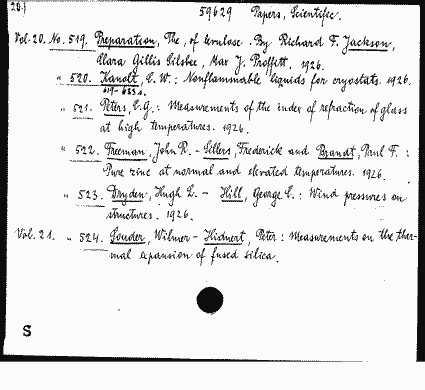 20.)
59629 Papers, Scientific.
Vol. 20. No. 519. Preparation, The, of levulose. By Richard F. Jackson,
Clara Gillis Silsbee, Max J. Proffitt. 1926.
" 520. Kanolt, C. W.: Nonflammable liquids for cryostats. 1926.
619-633 s.
" 521. Peters, C. G.: Measurements of the index of refraction of glass
at high temperatures. 1926.
" 522. Freeman, John R. - Sillers, Frederick and Brandt, Paul F. :
Pure zinc at normal and elevated temperatures. 1926.
" 523. Dryden, Hugh L. - Hill, George C. : Wind pressures on
structures. 1926.
Vol. 21. " 524. Souder, Wilmer - Hidnert, Peter : Measurements on the ther-
mal expansion of fused silica.
S